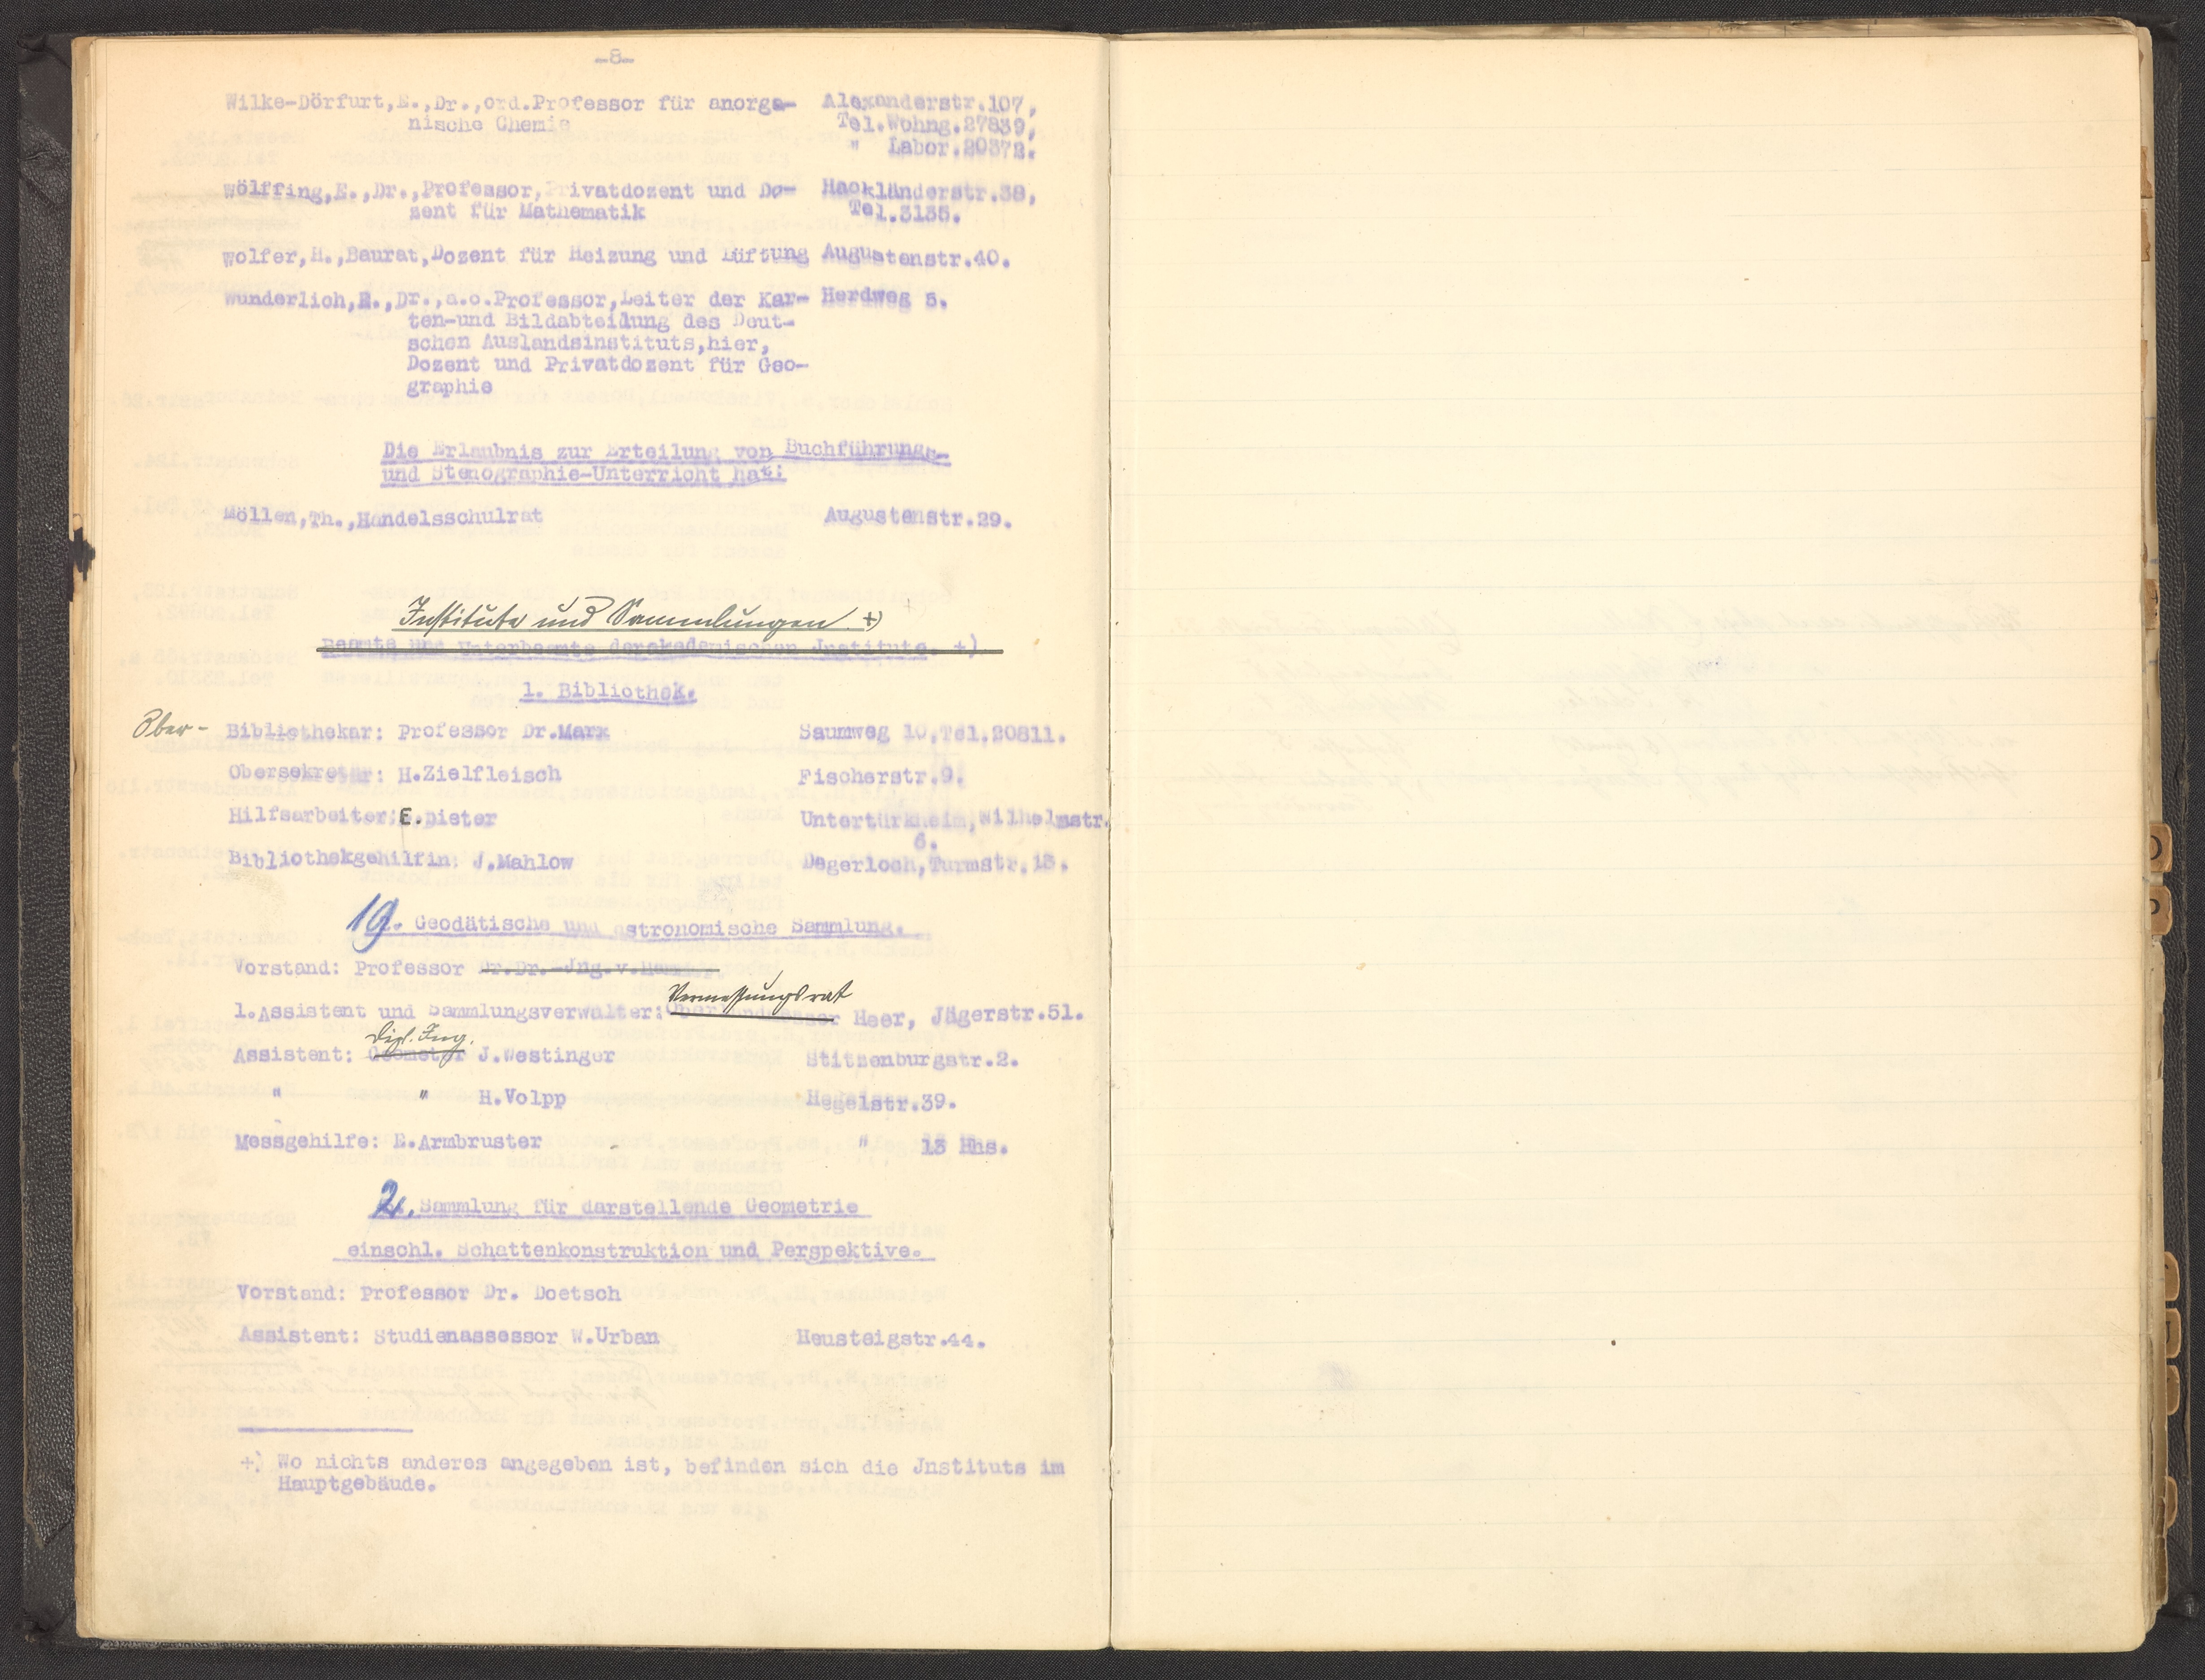 -8-
Wilke-Dörfurt,E.,Dr.,ord.Professor für anorga- Alexanderstr.107,
nische Chemie Tel.Wohng.27839,
" Labor.20372.
Wölffing,E.,Dr.,Professor,Privatdozent und Do- Hackländerstr.38,
zent für Mathematik Tel.3135.
Wolfer,H.,Baurat,Dozent für Heizung und Lüftung Augustenstr.40.
Wunderlich,E.,Dr.,a.o.Professor,Leiter der Kar- Herdweg 5.
ten-und Bildabteilung des Deut-
schen Auslandsinstituts,hier,
Dozent und Privatdozent für Geo-
graphie
Die Erlaubnis zur Erteilung von Buchführungs-
und Stenographie-Unterricht hat:
Möllen,Th.,Handelsschulrat Augustenstr.29.
Institute und Sammlungen. +)
Beamte und Unterbeamte derakademischen Jnstitute. +)
1. Bibliothek.
Ober- Bibliothekar: Professor Dr.Marx Saumweg 10,Tel.20811.
Obersekretär: H.Zielfleisch Fischerstr.9.
Hilfsarbeiter:E.Dieter Untertürkheim,Wilhelmstr.
6.
Bibliothekgehilfin: J.Mahlow Degerloch,Turmstr.13.
19. Geodätische und astronomische Sammlung.
Vorstand: Professor Dr.Dr.-Jng.v.
Vermessungsrat
1.Assistent und Sammlungsverwalter: Oberlandmesser Heer, Jägerstr.51.
Dipl. Ing.
Assistent: Geometer J.Westinger Stitzenburgstr.2.
" " H.Volpp Hegelstr.39.
Messgehilfe: E.Armbruster " 13 Hhs.
2. Sammlung für darstellende Geometrie
einschl. Schattenkonstruktion und Perspektive.
Vorstand: Professor Dr. Doetsch
Assistent: Studienassessor W.Urban Heusteigstr.44.
+) Wo nichts anderes angegeben ist, befinden sich die Jnstitute im
Hauptgebäude.